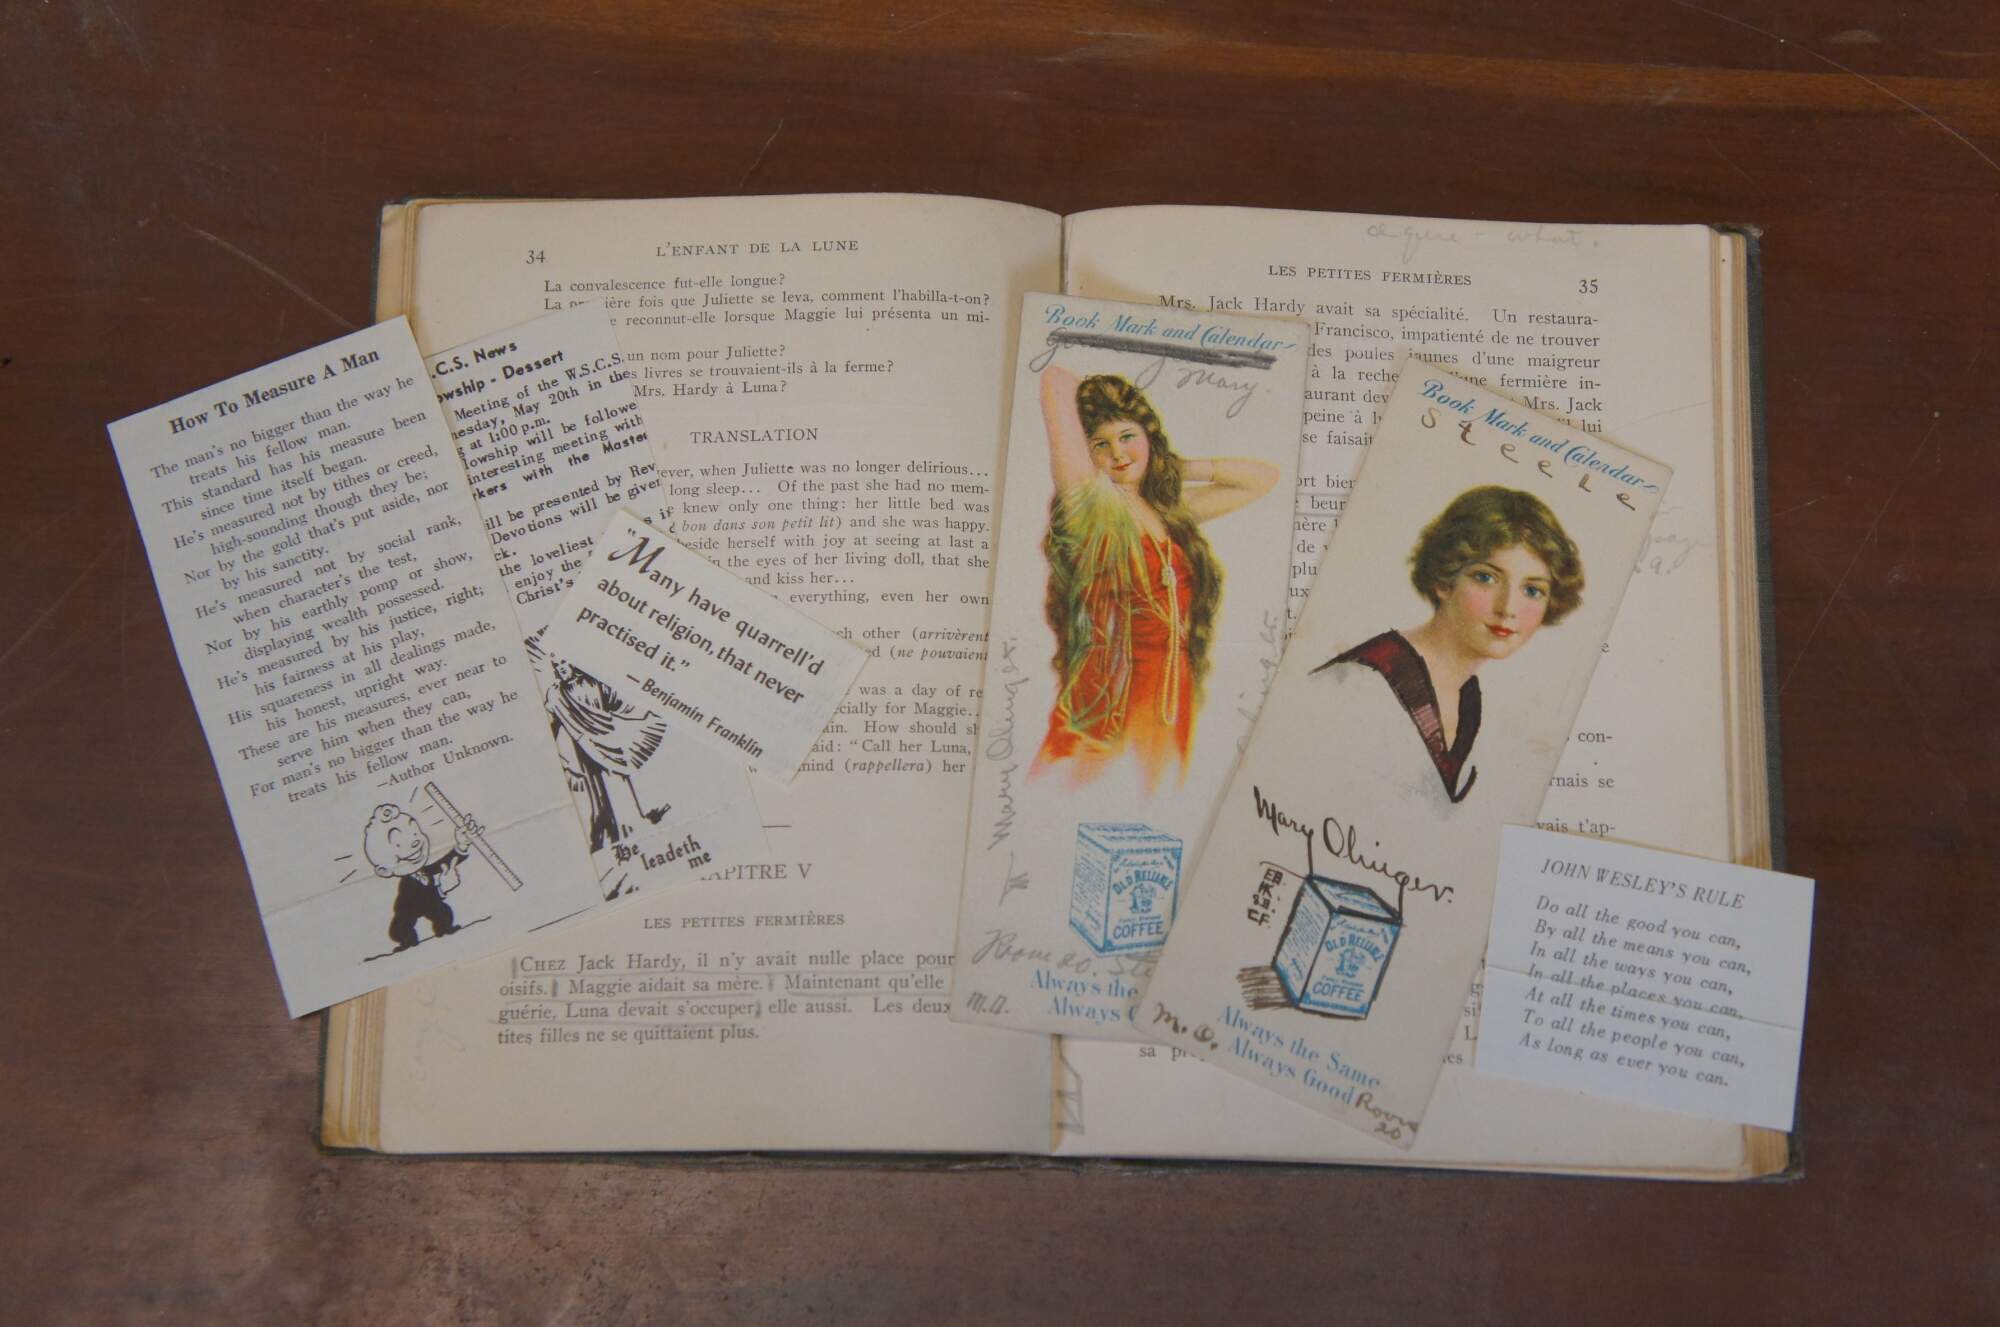 34
L'ENFANT DE LA LUNE
La convalescence fut-elle longue?
La ière fois que Juliette se leva, comment l'habilla-t-on?
reconnut-elle lorsque Maggie lui présenta un mi-
un nom pour Juliette?
s livres se trouvaient-ils à la ferme?
Mrs. Hardy à Luna?
TRANSLATION
ever, when Juliette was no longer delirious...
long sleep... Of the past she had no mem-
knew only one thing: her little bed was
bon dans son petit lit) and she was happy.
eside herself with joy at seeing at last a
n the eyes of her living doll, that she
and kiss her...
everything, even her own
ch other (arrivèrent
d (ne pouvaient
was a day of re
cially for Maggie..
in. How should sh
aid: "Call her Luna,
mind (rappellera) her
APITRE V
LES PETITES FERMIÈRES
CHEZ Jack Hardy, il n'y avait nulle place pour
oisifs. Maggie aidait sa mère. Maintenant qu'elle
guérie, Luna devait s'occuper, elle aussi. Les deux
tites filles ne se quittaient plus.
How To Measure A Man
The man's no bigger than the way he
treats his fellow man.
This standard has his measure been
since time itself began.
He's measured not by tithes or creed,
high-sounding though they be;
Nor by the gold that's put aside, nor
by his sanctity.
He's measured not by social rank,
when character's the test,
Nor by his earthly pomp or show,
displaying wealth possessed.
He's measured by his justice, right;
his fairness at his play,
His squareness in all dealings made,
his honest, upright way.
These are his measures, ever near to
serve him when they can,
For man's no bigger than the way he
treats his fellow man.
—Author Unknown.
.C.S. News
owship - Dessert
Meeting of the W.S.C.S.
nesday, May 20th in the
at 1:00 p.m.
lowship will be followe
interesting meeting with
rkers with the Master
ill be presented by Rev
Devotions will be given
ck.
the loveliest
enjoy the
Christ's
He
leadeth
me
"Many have quarrell'd
about religion, that never
practised it."
—Benjamin Franklin
what.
LES PETITES FERMIÈRES
35
Mrs. Jack Hardy avait sa spécialité. Un restaura-
Francisco, impatienté de ne trouver
des poules jaunes d'une maigreur
à la reche une fermière in-
aurant dev Mrs. Jack
peine à lui
se faisait
ort bien
beur
de
con-
rnais se
vais t'ap-
page
Book Mark and Calendar
Mary.
Mary Olinger
OLD RELIABLE
COFFEE
Room 20.
Always the
Always
M.O.
Book Mark and Calendar
Steele
Mary Olinger.
OLD RELIABLE
COFFEE
Always the Same
Always Good
M.O.
Room
20
JOHN WESLEY'S RULE
Do all the good you can,
By all the means you can,
In all the ways you can,
In all the places you can,
At all the times you can,
To all the people you can,
As long as ever you can.